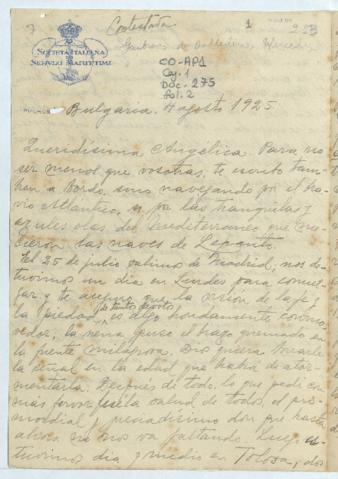 7 Contestada 1 253
SOCIETÀ ITALIANA
DI
SERVIZI MARITTIMI
CO-AP1
Caj. 1
Doc. 275
fol. 2
Bulgaria. 4 agosto 1925
Queridísima Angélica. Para no
ser menos que vosotras, te escribo tam-
bien a bordo, sino navegando por el bra-
vío Atlántico, si por las tranquilas y
azules olas del Mediterraneo, que
las naves de Lepanto.
El 25 de julio salimos de Madrid, nos de-
tuvimos un día en Lourdes para comul-
gar y te aseguro que la vision de la fé y
la piedad de tantos devotos, es algo hondamente conmo-
vedor, la nena puso el brazo quemado en
la fuente milagrosa. Dios quiera borrarle
la señal en la edad que había de ator-
mentarla. Despues de todo, lo que pedí con
mas fervor fué la salud de todos, el pri-
mordial y preciadísimo don que hasta
ahora no nos va faltando. Luego es-
tuvimos dia y medio en Tolosa, dos